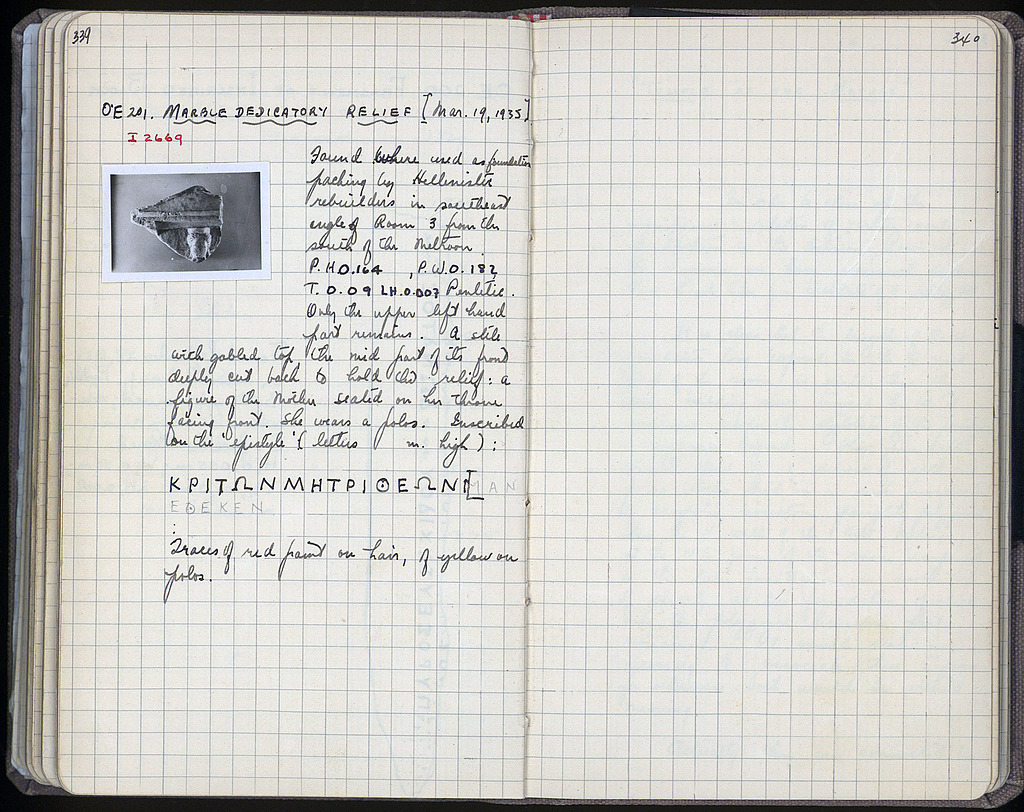 339
340
O'E 201. MARBLE DEDICATORY RELIEF [Mar. 19, 1935]
I 2669
Found where used as foundation
packing by Hellenistic
rebuilders in southeast
angle of Room 3 from the
south of the Metroon.
P.H. 0.164 , P.W. 0.182
T. 0.09 LH. 0.007 Pentelic.
Only the upper left hand
part remains. A stele
with gabled top, the mid part of its front
deeply cut back to hold the relief: a
figure of the Mother seated on her throne
facing front. She wears a polos. Inscribed
on the 'epistyle' (letters m. high):
ΚΡΙΤΩΝΜΗΤΡΙΘΕΩΝ[ΜΑΝ
ΕΘΕΚΕΝ
:
Traces of red paint on hair, of yellow on
polos.